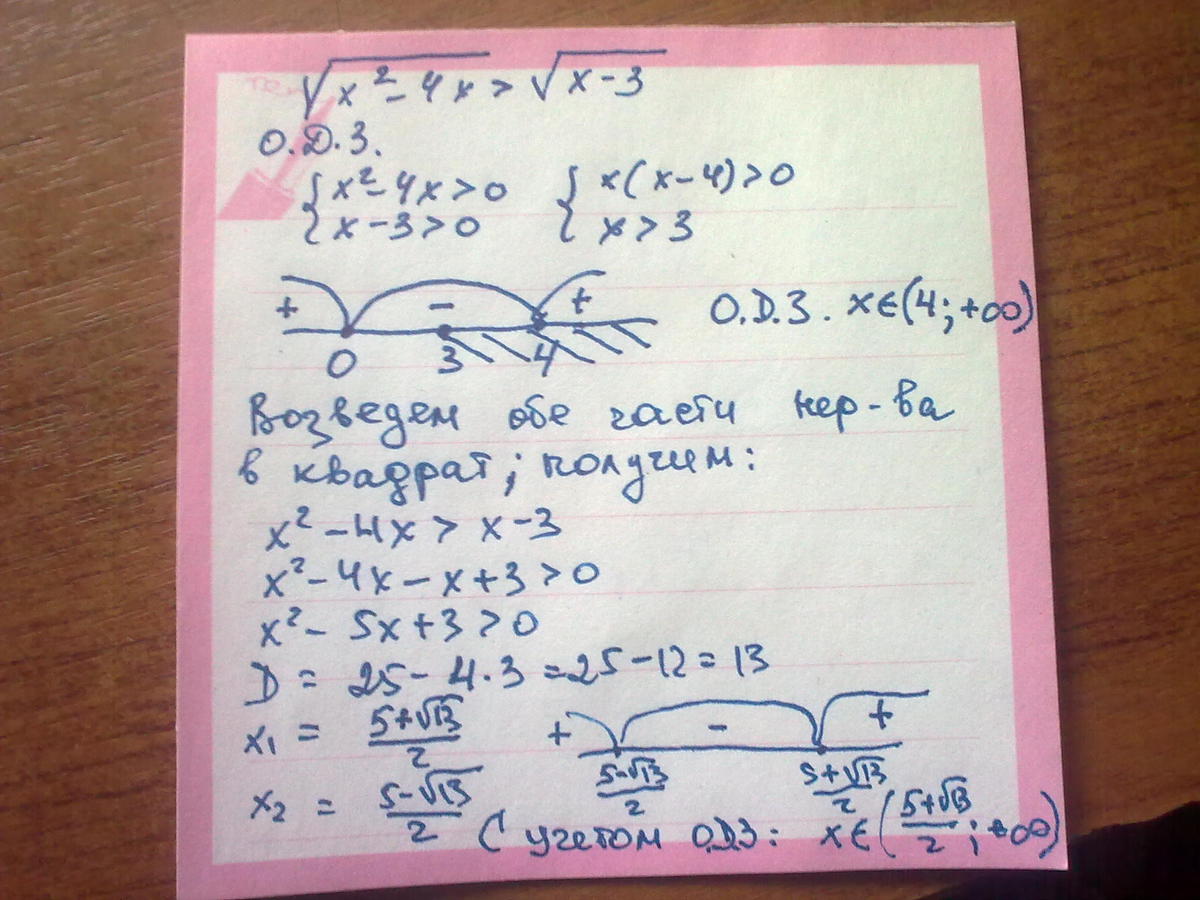 √(x² - 4x) > √(x - 3)
О.Д.З.
{ x² - 4x > 0 { x(x - 4) > 0
{ x - 3 > 0 { x > 3
+ - +
0 3 4 О.Д.З. x ∈ (4; +∞)
Возведем обе части нер-ва
в квадрат; получим:
x² - 4x > x - 3
x² - 4x - x + 3 > 0
x² - 5x + 3 > 0
D = 25 - 4·3 = 25 - 12 = 13
x₁ = (5+√13)/2 + - +
(5-√13)/2 (5+√13)/2
x₂ = (5-√13)/2
С учетом О.Д.З: x ∈ ((5+√13)/2; +∞)